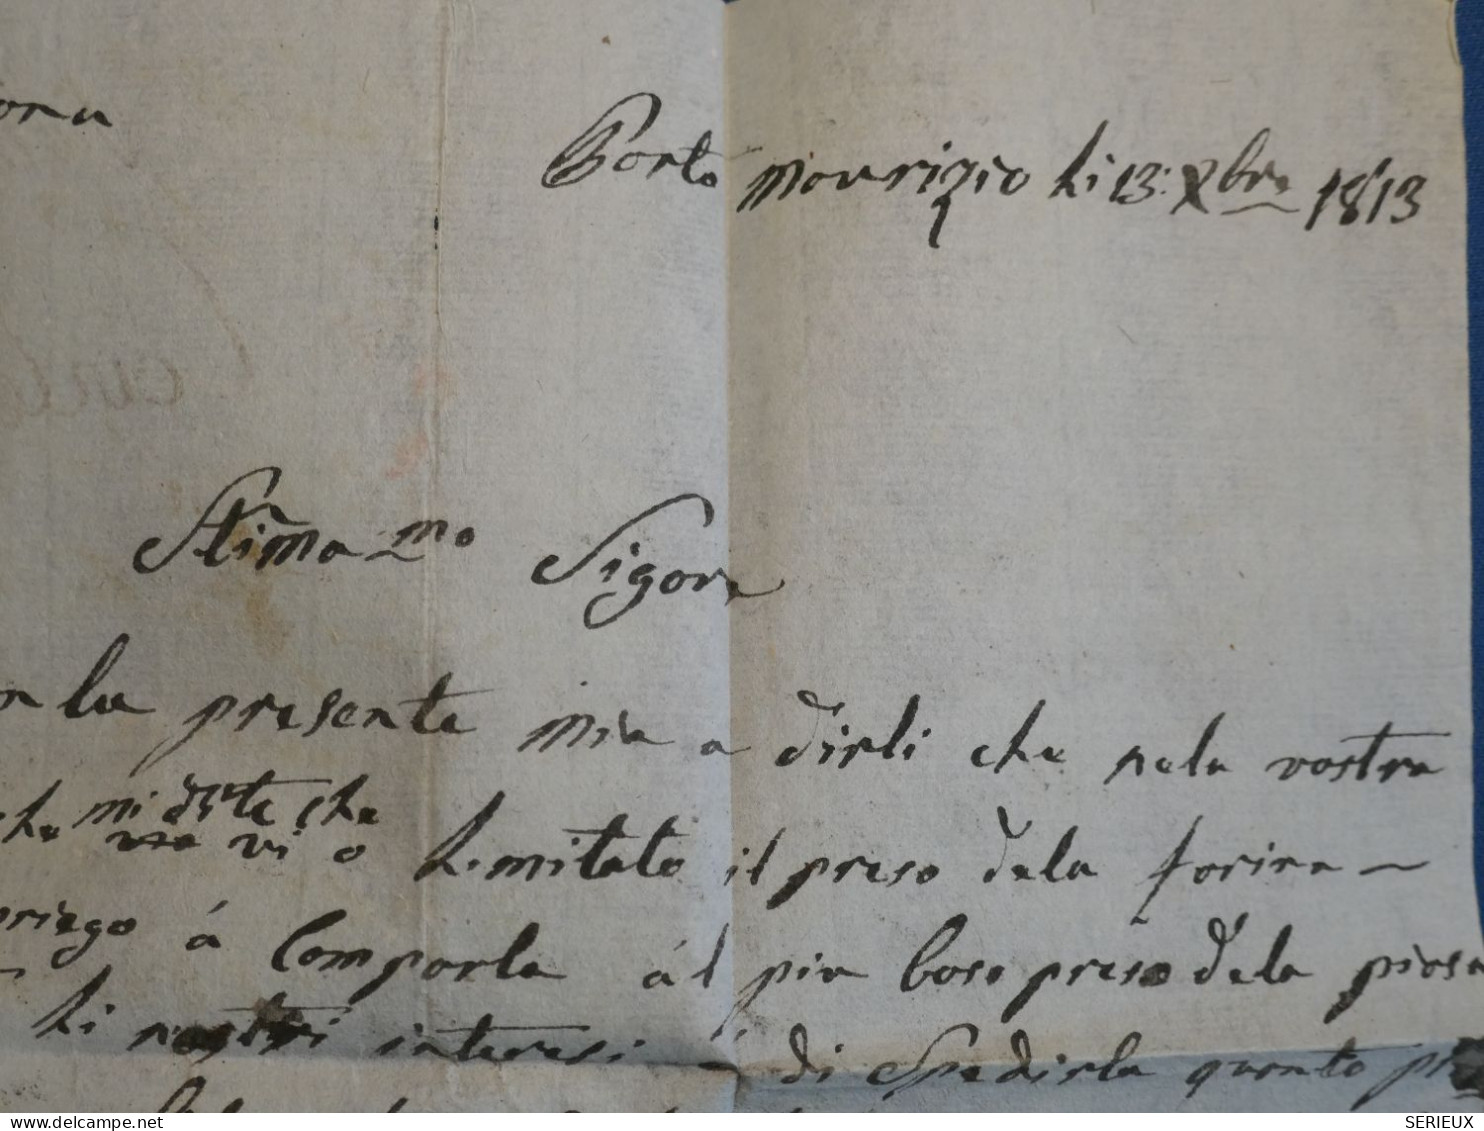 Porto Maurizio li 13: Xbre 1813
Stima mo Sigore
la presente mia a dirli che nela vostra
che mi dite che
vi o limitato il preso dela farina
priego á Comporla ál piu baso preso dela piosa
li nostri interesi á di Spedirla quanto
SERIEUX